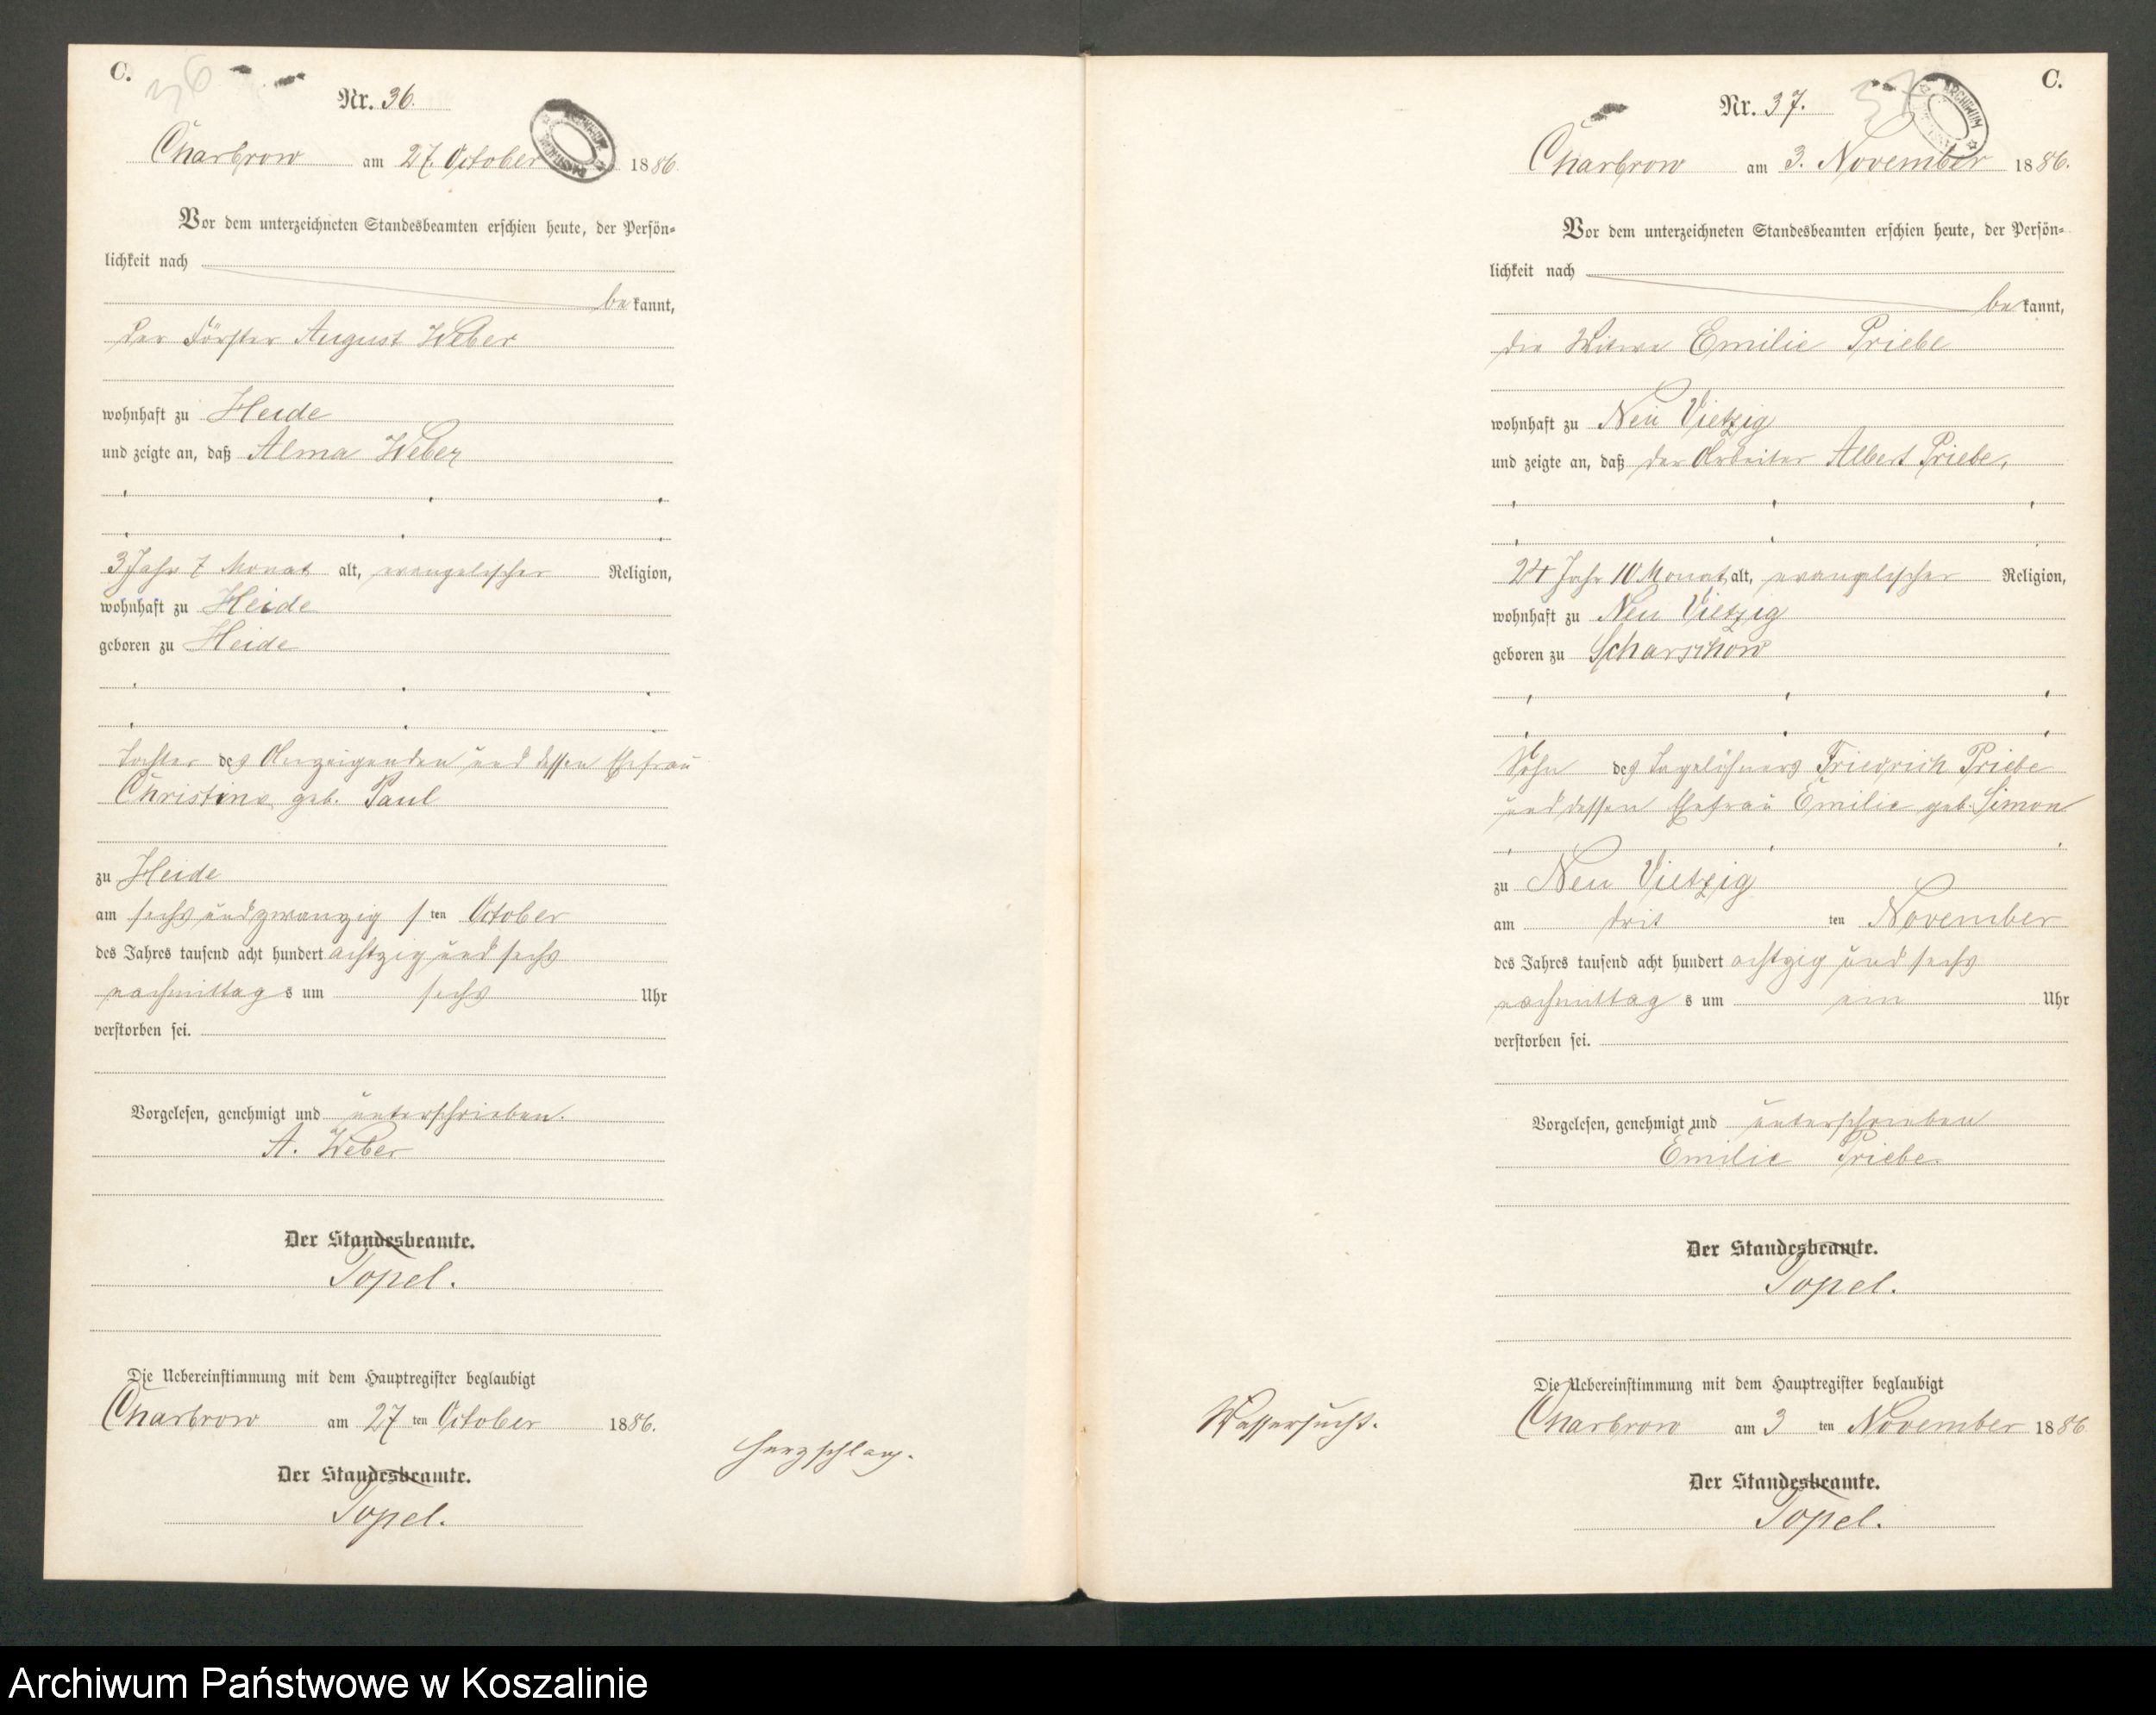 C.
36
Nr. 36.
Charbrow am 27. October 1886.
Vor dem unterzeichneten Standesbeamten erschien heute, der Persön-
lichkeit nach
bekannt,
der Förster August Weber
wohnhaft zu Heide
und zeigte an, daß Alma Weber
3 Jahr 7 Monat alt, evangelischer Religion,
wohnhaft zu Heide
geboren zu Heide
Tochter des Anzeigenden und dessen Ehefrau
Christine geb. Paul
zu Heide
am sechsundzwanzigsten October
des Jahres tausend acht hundert achtzig und sechs
nachmittags um sechs Uhr
verstorben sei.
Vorgelesen, genehmigt und unterschrieben.
A. Weber
Der Standesbeamte.
Topel.
Die Uebereinstimmung mit dem Hauptregister beglaubigt
Charbrow am 27 ten October 1886.
Herzschlag.
Der Standesbeamte.
Topel.
C.
37
ARCHIWUM
Nr. 37.
Charbrow am 3. November 1886.
Vor dem unterzeichneten Standesbeamten erschien heute, der Persön-
lichkeit nach
bekannt,
die Witwe Emilie Priebe
wohnhaft zu Neu Vietzig
und zeigte an, daß der Arbeiter Albert Priebe,
24 Jahr 10 Monat alt, evangelischer Religion,
wohnhaft zu Neu Vietzig
geboren zu Scharschow
Sohn des Tagelöhners Friedrich Priebe
und dessen Ehefrau Emilie geb. Simon
zu Neu Vietzig
am dritten November
des Jahres tausend acht hundert achtzig und sechs
nachmittags um ein Uhr
verstorben sei.
Vorgelesen, genehmigt und unterschrieben
Emilie Priebe
Der Standesbeamte.
Topel.
Die Uebereinstimmung mit dem Hauptregister beglaubigt
Wassersucht.
Charbrow am 3 ten November 1886
Der Standesbeamte.
Topel.
Archiwum Państwowe w Koszalinie